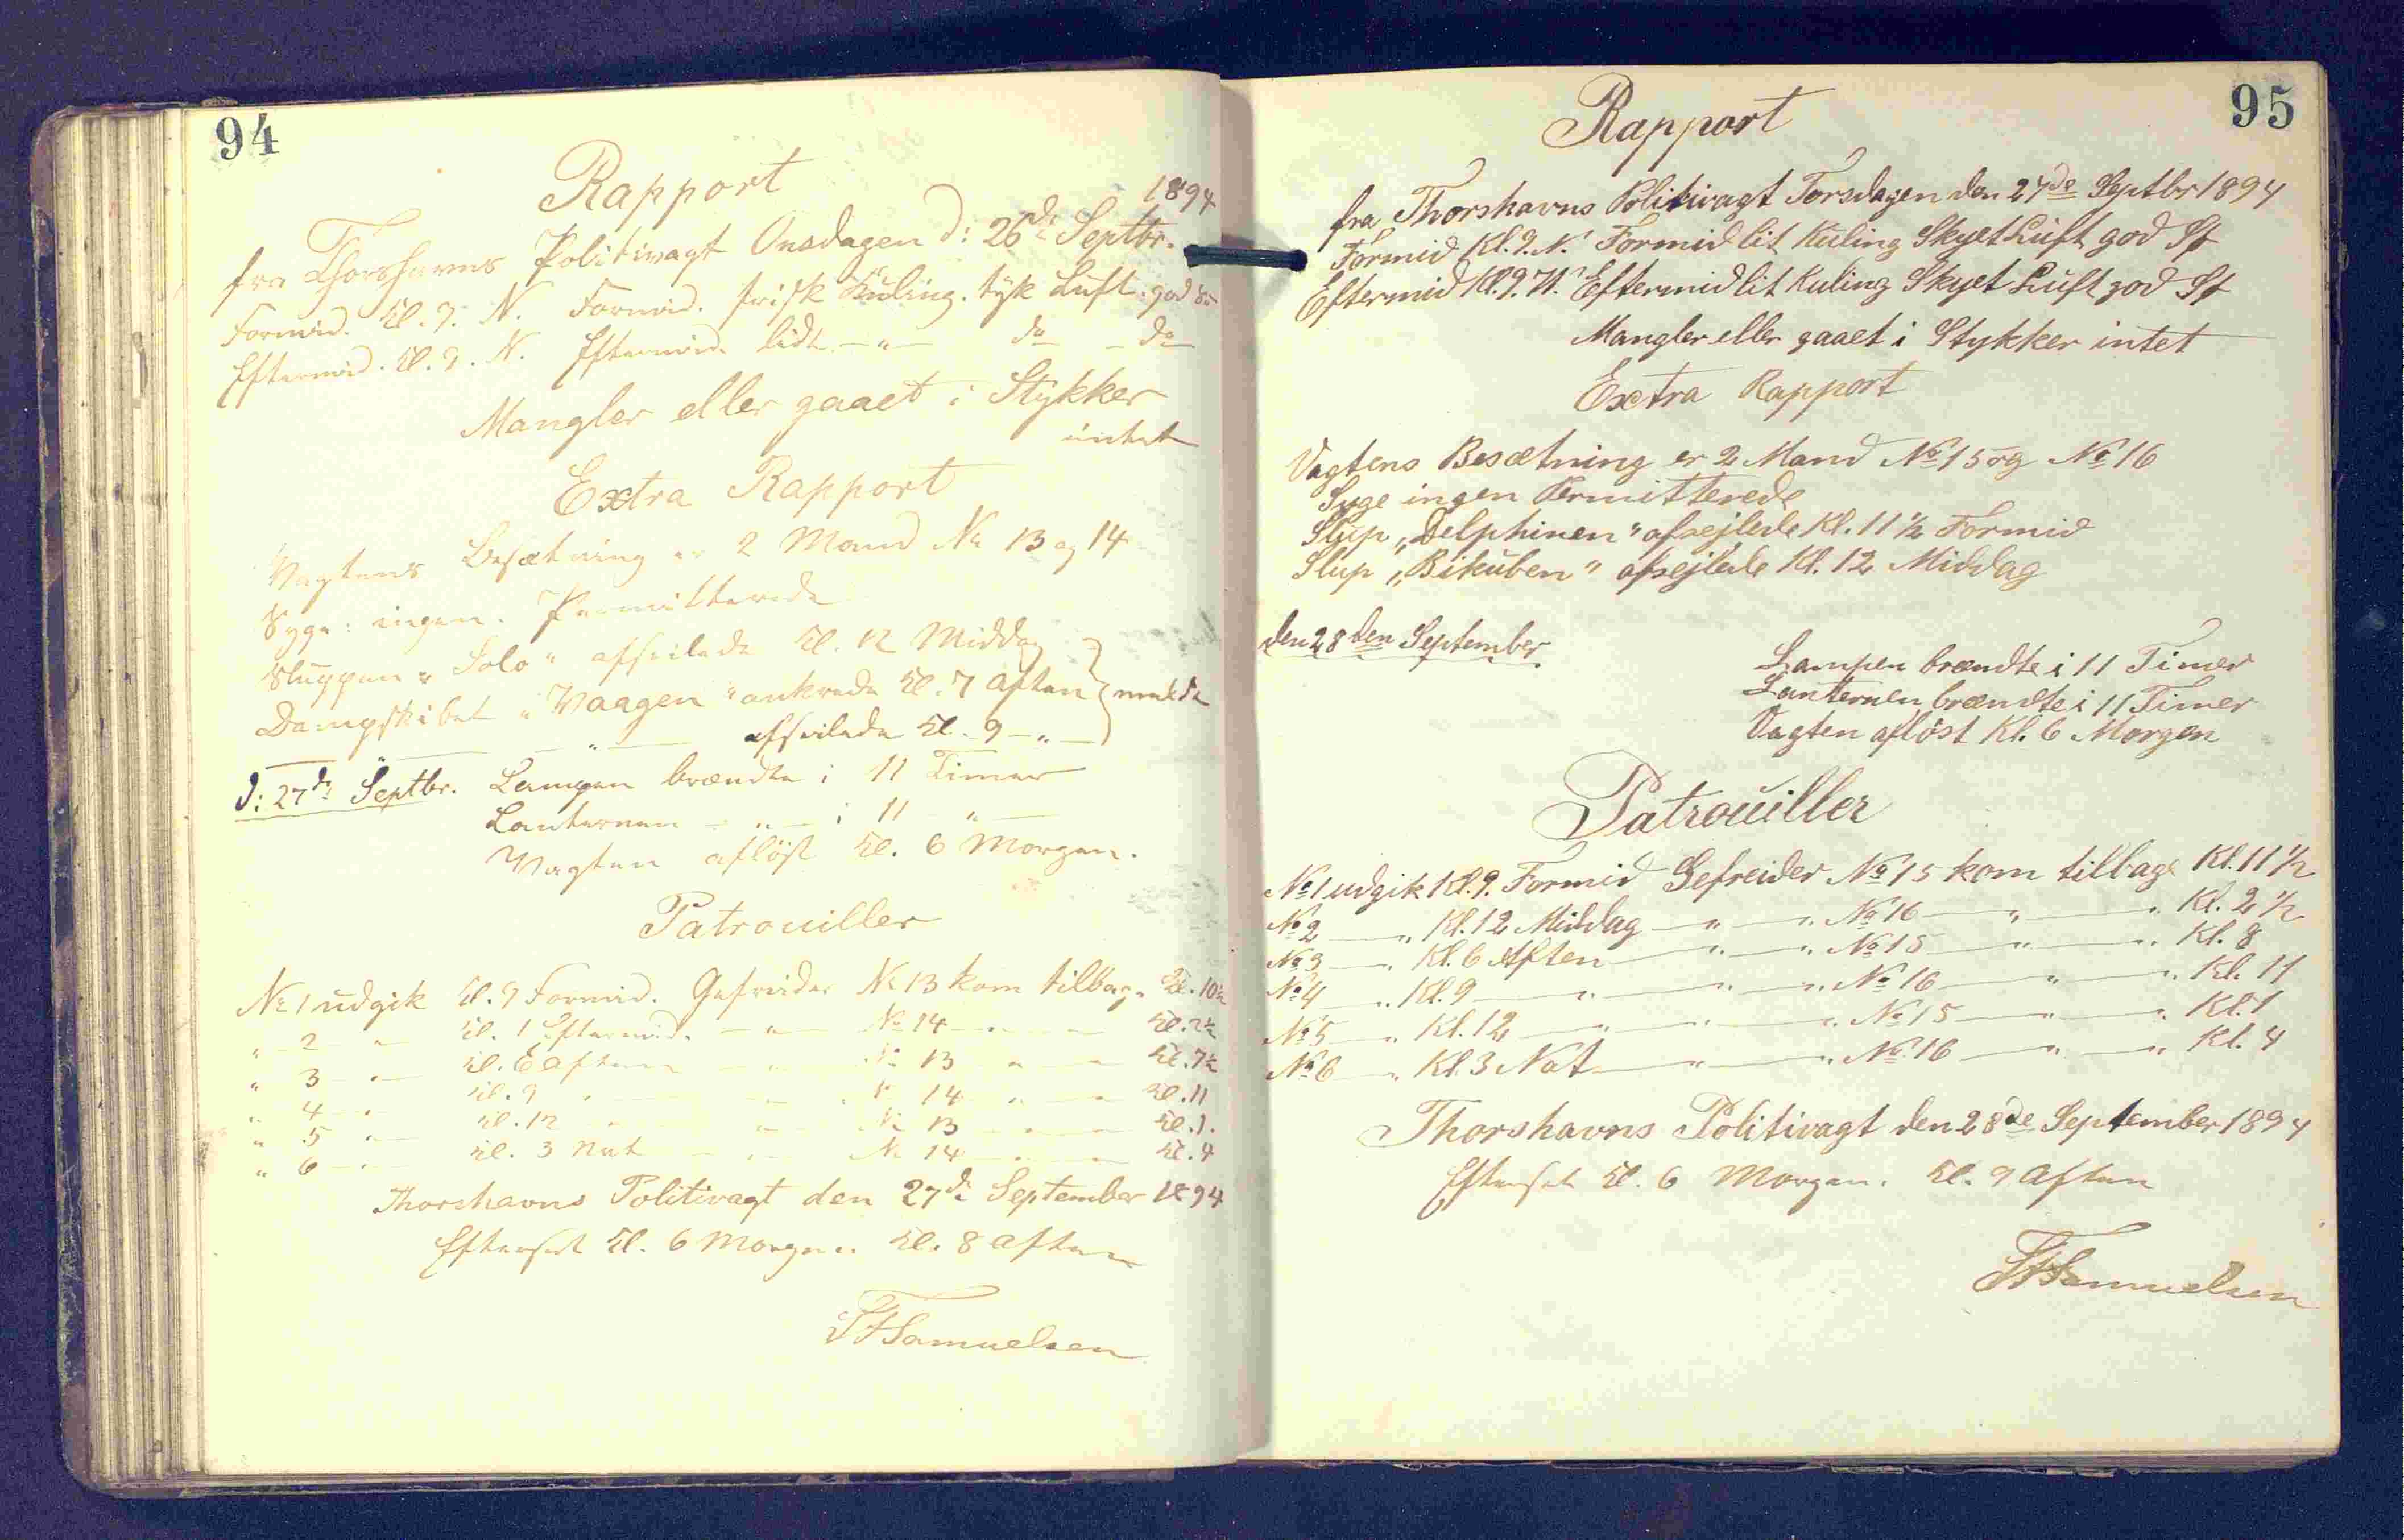 94
Rapport
1894
fra Thorshavns Politivagt Onsdagen d: 26de Septbr.
Formid. Kl. 9. N. Formid. frisk Kuling. tyk Luft. god
Eftermid. Kl. 9. N. Eftermid. lidt —"— do — do
Mangler eller gaaet i Stykker
intet
Extra Rapport
Vagtens Besætning er 2 Mand No 13 og 14
Syge: ingen. Permitterede
Sluppen „Solo" afseilede Kl. 12 Middag
Dampskibet „Vaagen" ankrede Kl. 7 Aften
— " — afseilede Kl. 9 —"—
d: 27de Septbr. Lampen brændte i 11 Timer
Lanternen — " — i 11 —"—
Vagten afløst Kl. 6 Morgen.
Patrouiller
No 1 udgik Kl. 9 Formid. Gefreider No 13 kom tilbage Kl. 10½
" 2 — " Kl. 1 Eftermid. — " — No 14 — " — Kl. 2½
" 3 — " — Kl. 6 Aften — " — No 13 — " — Kl. 7½
" 4 — " Kl. 9 — " — No 14 — " — Kl. 11
" 5 — " — Kl. 12 — " — No 13 — " — Kl. 1.
" 6 — " — Kl. 3 Nat — " — No 14 — " — Kl. 4
Thorshavns Politivagt den 27de September 1894
Efterset Kl. 6 Morgen. Kl. 8 Aften
Samuelsen
95
Rapport
fra Thorshavns Politivagt Torsdagen den 27de Septbr 1894
Formid Kl. 9. N. Formid lit Kuling Skyet Luft god
Eftermid Kl. 9. N. Eftermid lit Kuling Skyet Luft god
Mangler eller gaaet i Stykker intet
Extra Rapport
Vagtens Besætning er 2 Mand No 15 og No 16
Syge ingen Permitterede
Slup „Delphinen" afsejlede Kl. 11 ½ Formid
Slup „Bikuben" afsejlede Kl. 12 Middag
den 28den September
Lampen brændte i 11 Timer
Lanternen brændte i 11 Timer
Vagten afløst Kl. 6 Morgen
Patrouiller
No 1 udgik Kl. 9. Formid Gefreider No 15 kom tilbage Kl. 11 ½
No 2 — " Kl. 12 Middag — " — " No 16 — " — " Kl. 2 ½
No 3 — " Kl. 6 Aften — " — " No 15 — " — " Kl. 8
No 4 " Kl. 9 — " — " — " No 16 — " — " Kl. 11
No 5 — " Kl. 12 — " — " — " No 15 — " — " Kl. 1
No 6 — " Kl. 3 Nat — " — " No 16 — " — " Kl. 4
Thorshavns Politivagt den 28de September 1894
Efterset Kl. 6 Morgen. Kl. 9 Aften
Samuelsen